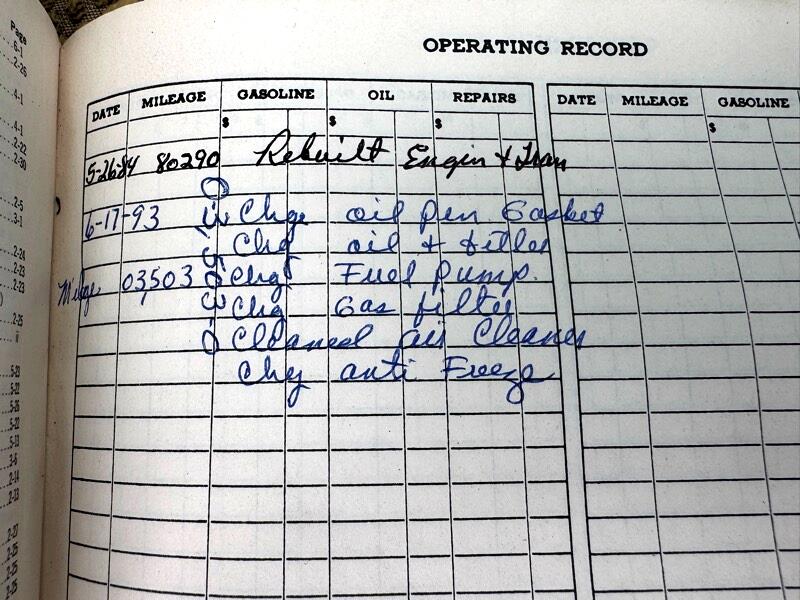 Page
6-1
2-26
4-1
4-1
2-22
2-30
2-5
3-1
2-24
2-23
2-23
2-25
ii
5-23
5-22
5-25
5-22
5-13
3-6
2-14
2-13
2-27
2-25
2-25
2-25
OPERATING RECORD
DATE MILEAGE GASOLINE OIL REPAIRS
$ $ $
5-26-84 80290 Rebuilt Engin & Tran
6-17-93 Chge oil pen Gasket
Chg oil &
Milage 03,503 Chg Fuel Pump.
Chg Gas filter
Cleaned air Cleaner
Chg anti Freeze
DATE MILEAGE GASOLINE
$